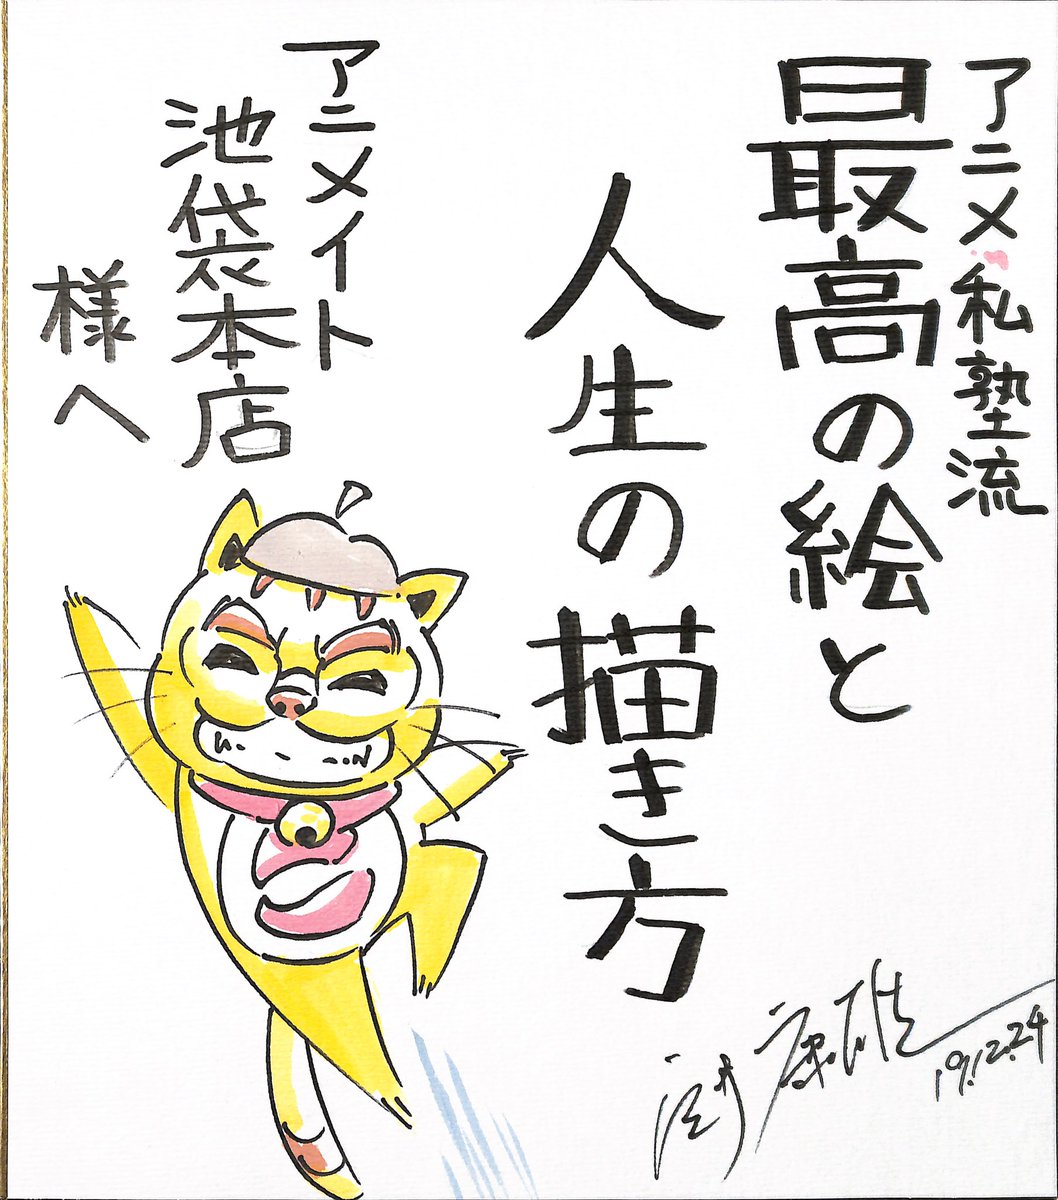 アニメ私塾流
最高の絵と
人生の描き方
アニメイト
池袋本店
様へ
19.12.24